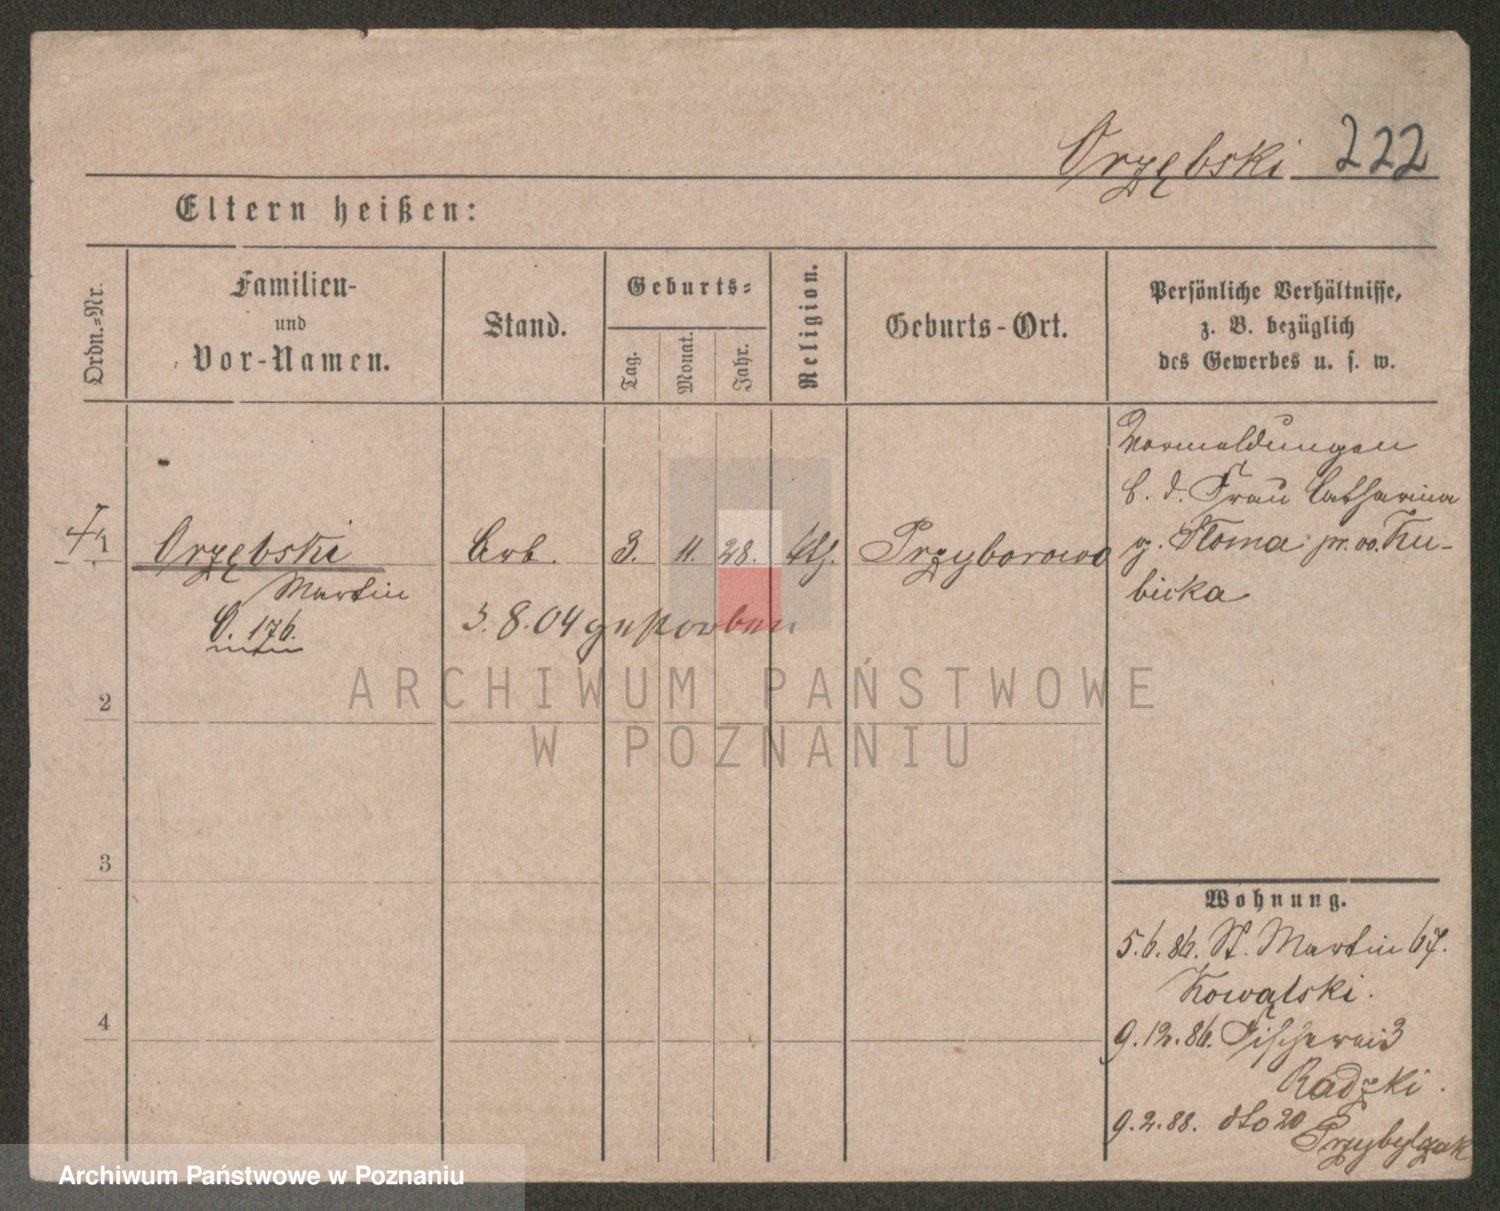 Orzębski 222
Eltern heißen:
Ordn.=Nr.
Familien-
und
Vor-Namen.
Stand.
Geburts=
Tag.
Monat.
Jahr.
Religion.
Geburts-Ort.
Persönliche Verhältnisse,
z. B. bezüglich
des Gewerbes u. s. w.
Vormeldungen
b. d. Frau Catharina
g. Floma pr. vo. Ku-
bicka
1 Orzębski Arb. 3. 11. 28. kth. Przyborowo
Martin
O. 176.
3.8.04 gestorben
2
3
4
Wohnung.
5.6.86. St. Martin 67.
Kowalski.
9.12.86. Fischerei 3
Radzki.
9.2.88. dto 20
Przybylzak
ARCHIWUM PAŃSTWOWE
W POZNANIU
Archiwum Państwowe w Poznaniu